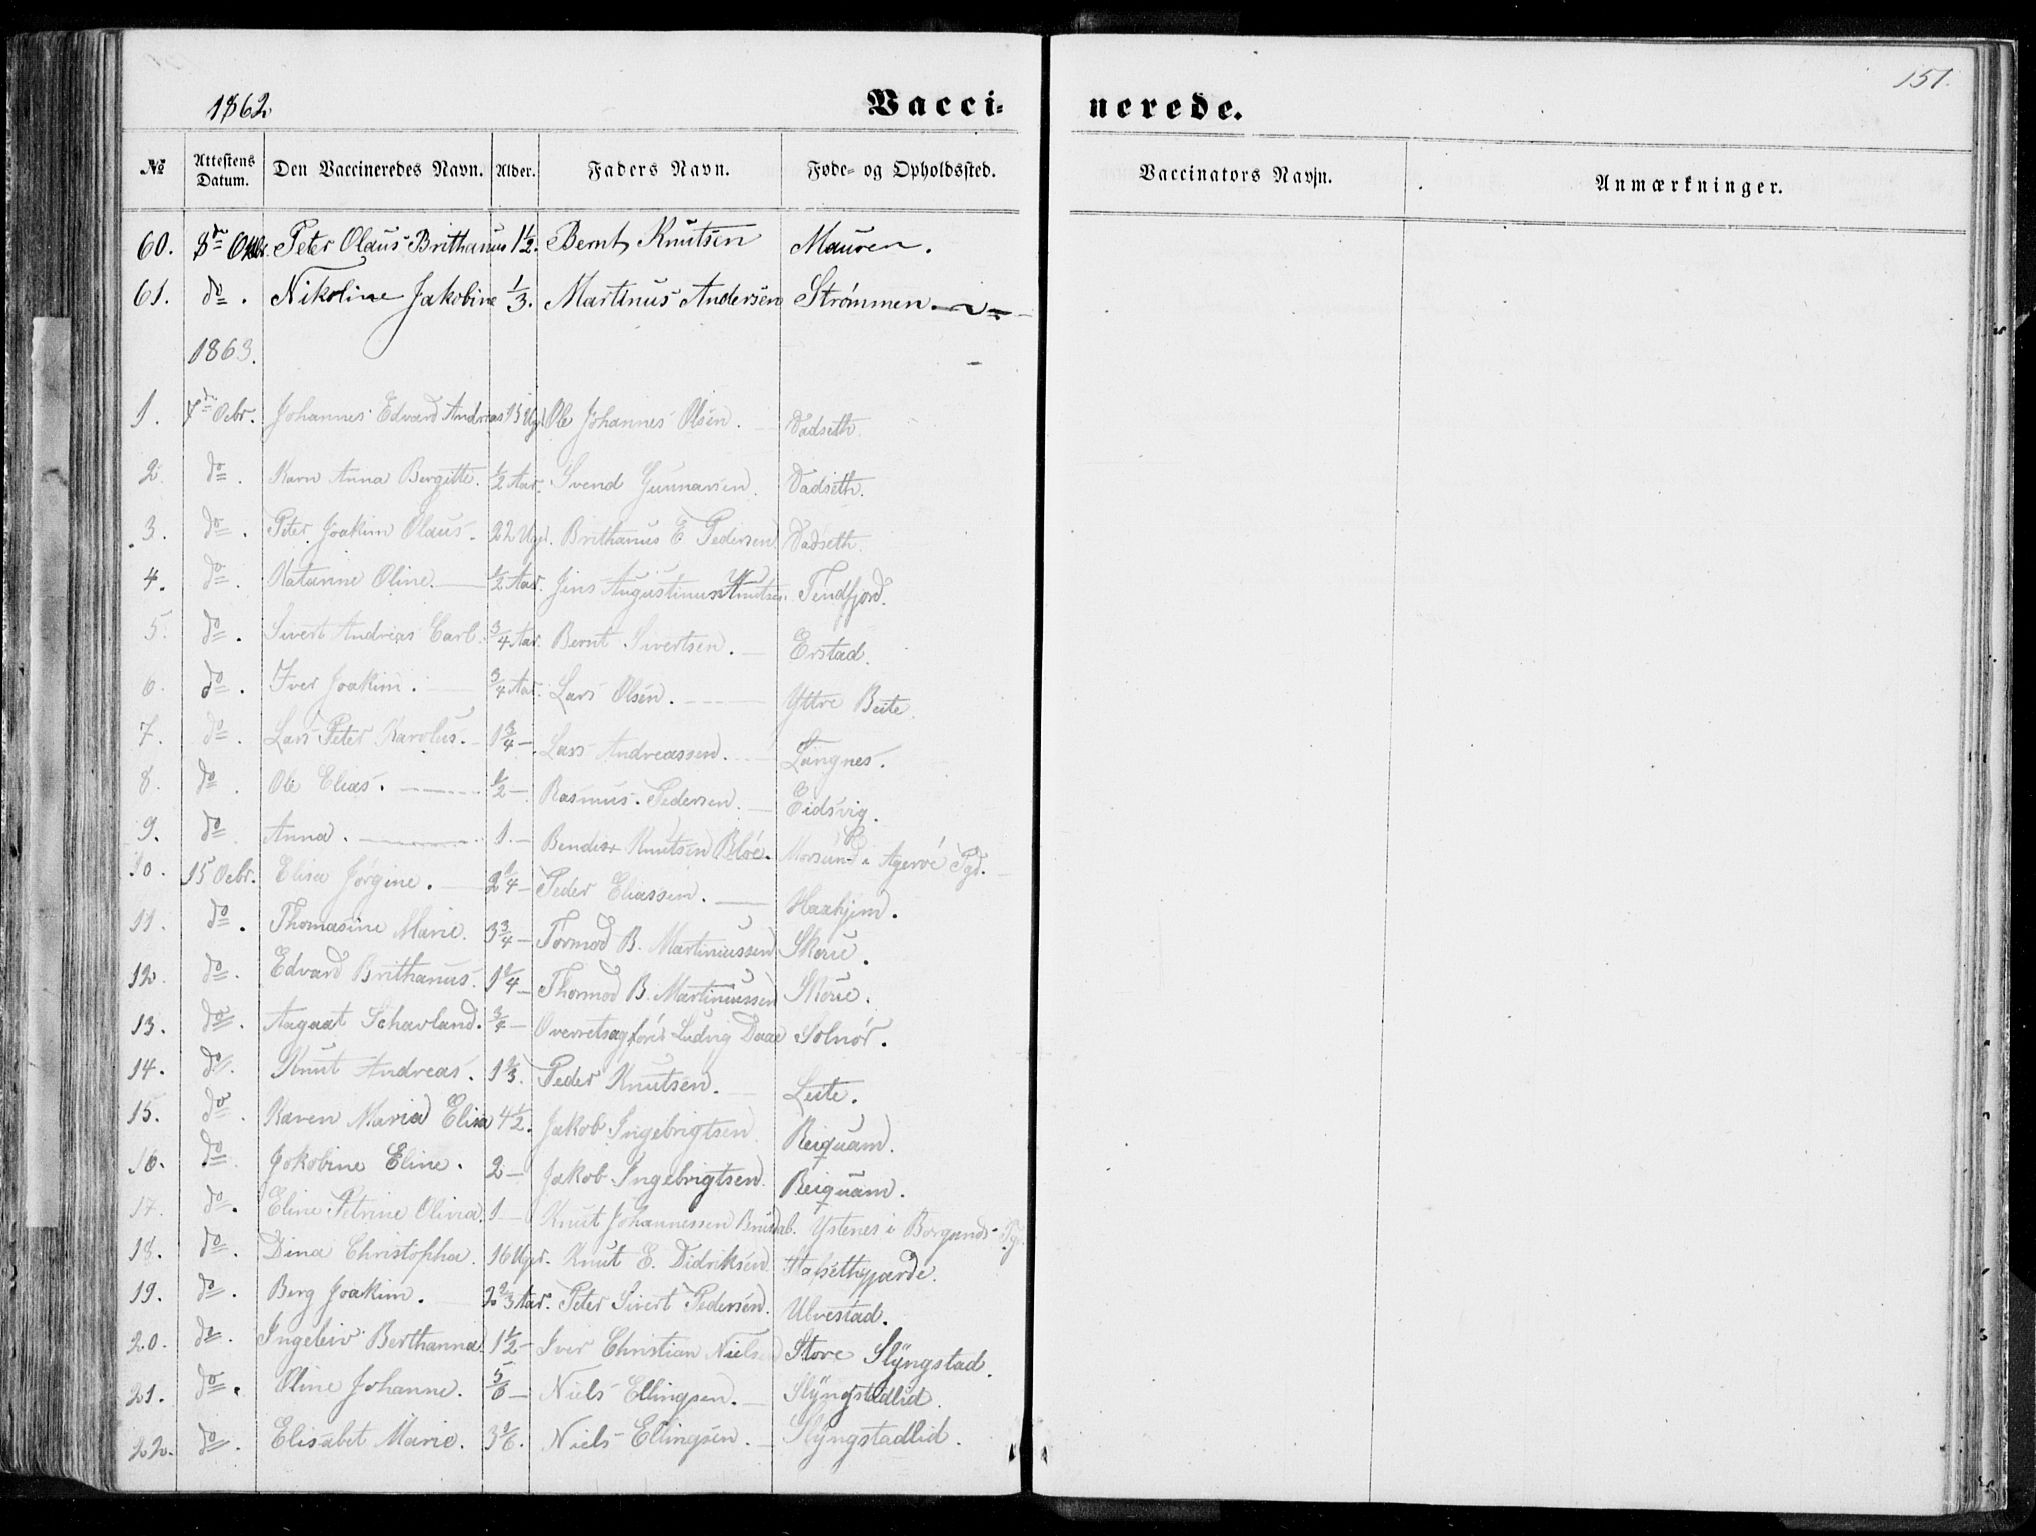 151.
1862
Vacci=
nerede.
№ Attestens Datum. Den Vaccineredes Navn. Alder. Faders Navn. Føde- og Opholdssted.
Vaccinators Navn. Anmærkninger.
60. 8de Octbr. Peter Olaus Brithanus 1½. Bernt Knutsen Mauren.
61. do. Nikoline Jakobine ⅓. Martinus Andersen Strømmen.
1863.
1. 7de Ocbr. Johannes Edvard Andreas 13 Ugr Ole Johannes Olsen. Vadseth.
2. do. Karn Anna Bergitte. ½ Aar. Svend Gunnarsen. Vadseth.
3. do. Peter Joakim Olaus. 22 Ugr. Brithanus E Pedersen Vadseth.
4. do. Katarine Oline. ½ Aar. Jens Augustinus Knutsen. Tendfjord.
5. do. Sivert Andreas Carl. ¾ Aar. Bernt Sivertsen. Erstad.
6. do. Iver Joakim. ¾ Aar. Lars Olsen. Yttre Beite.
7. do. Lars Peter Karolus. 1¾ Lars Andreassen. Langnes.
8. do. Ole Elias. ½ Rasmus Pedersen. Eidsvig.
9. do. Anna. 1. Bendix Knutsen Bløe. Morsund i Agerøe Pgd.
10. 15 Ocbr. Elisa Jørgine. 2¼ Peder Eliassen. Haahjem.
11. do. Thomasine Marie. 3¾ Tormod B. Martinussen Skorie.
12. do. Edvard Brithanus. 1¼ Thormod B. Martinussen Skorie.
13. do. Aagaat Schavland. ¾ Overretsagfører Ludvig Daae Solnør.
14. do. Knut Andreas. 1⅔. Peder Knutsen. Leite.
15. do. Karen Maria Elisa 4½. Jakob Ingebrigtsen Reiquam.
16. do. Jokobine Eline. 2 Jakob Ingebrigtsen Reiquam.
17. do. Eline Petrine Olivia. 1 Knut Johannessen Brusdal. Ystenes i Borgunds Pgd.
18. do. Dina Christopha. 16 Ugr. Knut E. Didriksen Hafsethgjærde.
19. do. Berg Joakim. 2⅔ Aar. Peter Sivert Pedersen. Ulvestad.
20. do. Ingeleiv Berthanna 1½ Iver Christian Nielsen Store Slyngstad.
21. do. Oline Johanne. 5/6 Niels Ellingsen. Slyngstadlid.
22. do. Elisabet Marie. 3⅙. Niels Ellingsen. Slyngstadlid.